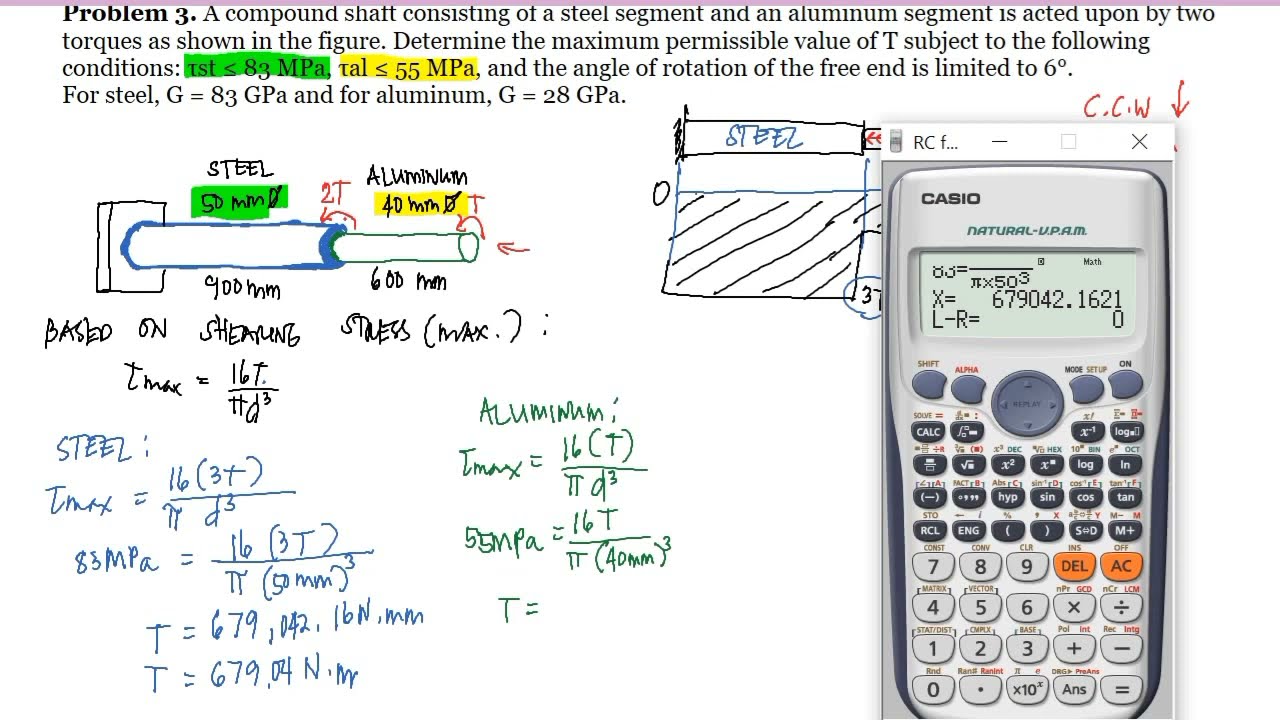 Problem 3. A compound shaft consisting of a steel segment and an aluminum segment is acted upon by two
torques as shown in the figure. Determine the maximum permissible value of T subject to the following
conditions: τst ≤ 83 MPa, τal ≤ 55 MPa, and the angle of rotation of the free end is limited to 6°.
For steel, G = 83 GPa and for aluminum, G = 28 GPa.
C.C.W
STEEL
0
3T
STEEL
50 mm Ø
2T
ALUMINUM
40 mm Ø
T
900 mm
600 mm
BASED ON SHEARING STRESS (MAX.) :
τmax = 16T / πd³
STEEL :
τmax = 16(3T) / π d³
83 MPa = 16 (3T) / π (50 mm)³
T = 679,042.16 N.mm
T = 679.04 N.m
ALUMINUM :
τmax = 16(T) / π d³
55MPa = 16T / π (40mm)³
T =
RC f...
CASIO
NATURAL-V.P.A.M.
Math
83=
π×50³
X= 679042.1621
L-R= 0
SHIFT ALPHA MODE SETUP ON
REPLAY
SOLVE =
CALC x⁻¹ log
x³ DEC HEX 10ˣ BIN eˣ OCT
x² log ln
FACT [B] Abs [C] sin⁻¹ [D] cos⁻¹ [E] tan⁻¹ [F]
(−) hyp sin cos tan
STO ← i % , X Y M− M
RCL ENG ( ) S⇔D M+
CONST CONV CLR INS OFF
7 8 9 DEL AC
MATRIX VECTOR nPr GCD nCr LCM
4 5 6 × ÷
STAT/DIST CMPLX BASE Pol Int Rec Intg
1 2 3 + −
Rnd Ran# RanInt π e DRG▸ PreAns
0 . ×10ˣ Ans =